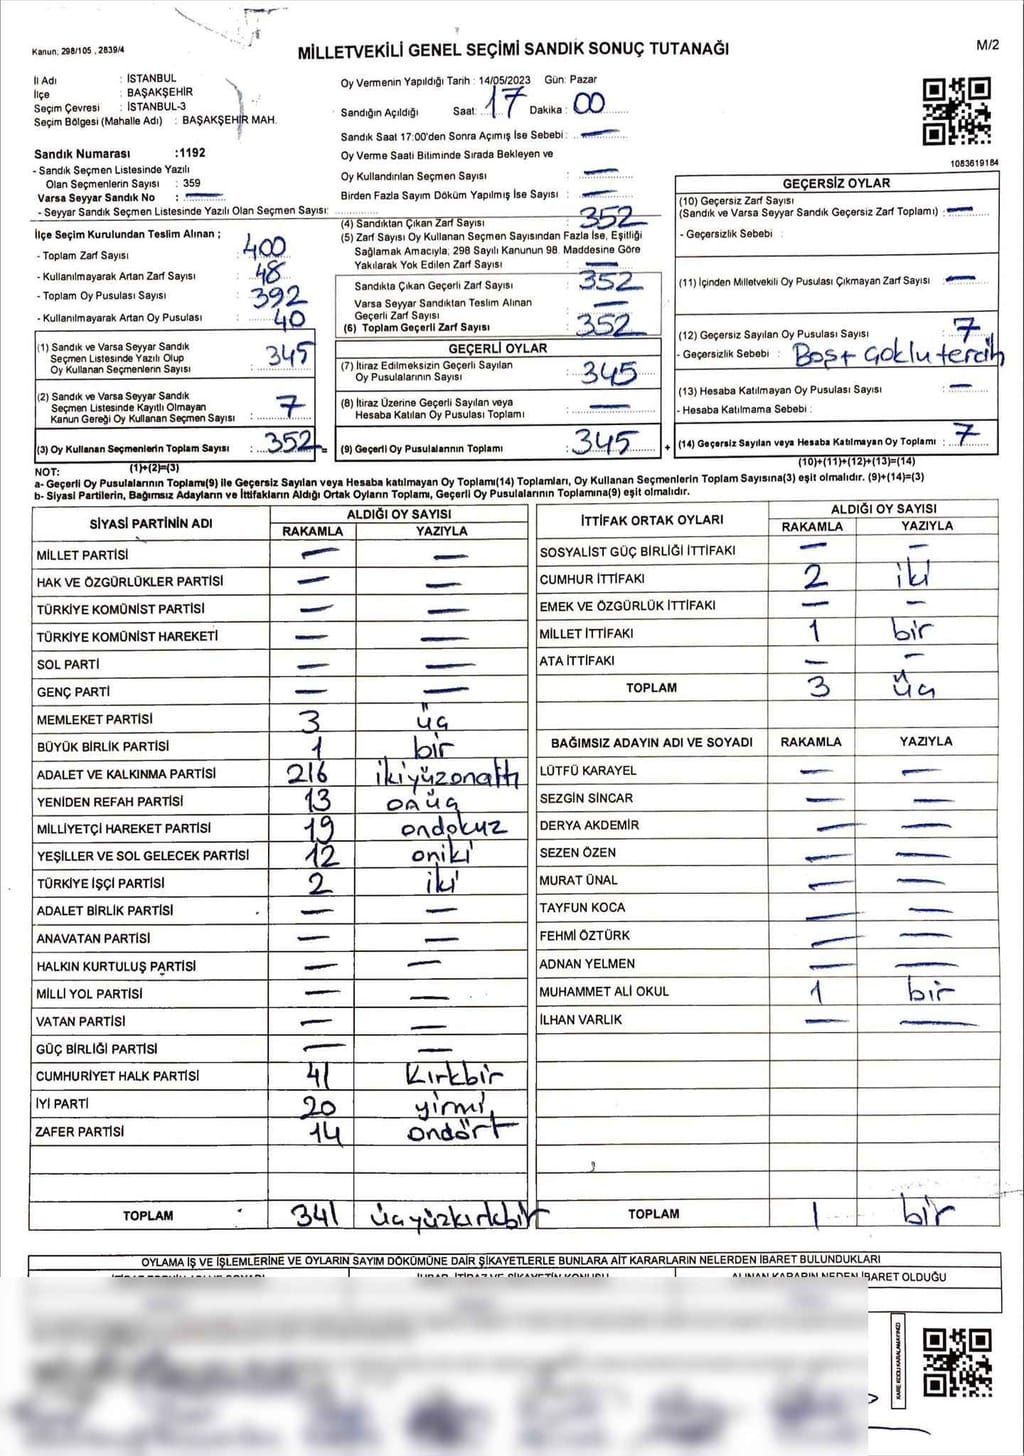 Kanun, 298/105 , 2839/4
MİLLETVEKİLİ GENEL SEÇİMİ SANDIK SONUÇ TUTANAĞI
M/2
İl Adı : İSTANBUL
İlçe : BAŞAKŞEHİR
Seçim Çevresi : İSTANBUL-3
Seçim Bölgesi (Mahalle Adı) : BAŞAKŞEHİR MAH.
Sandık Numarası :1192
- Sandık Seçmen Listesinde Yazılı
Olan Seçmenlerin Sayısı : 359
Varsa Seyyar Sandık No : —
- Seyyar Sandık Seçmen Listesinde Yazılı Olan Seçmen Sayısı:
İlçe Seçim Kurulundan Teslim Alınan ;
- Toplam Zarf Sayısı : 400
- Kullanılmayarak Artan Zarf Sayısı : 48
- Toplam Oy Pusulası Sayısı : 392
- Kullanılmayarak Artan Oy Pusulası : 40
(1) Sandık ve Varsa Seyyar Sandık
Seçmen Listesinde Yazılı Olup
Oy Kullanan Seçmenlerin Sayısı : 345
(2) Sandık ve Varsa Seyyar Sandık
Seçmen Listesinde Kayıtlı Olmayan
Kanun Gereği Oy Kullanan Seçmen Sayısı : 7
(3) Oy Kullanan Seçmenlerin Toplam Sayısı : 352 =
(1)+(2)=(3)
Oy Vermenin Yapıldığı Tarih : 14/05/2023 Gün: Pazar
Sandığın Açıldığı Saat: 17 Dakika : 00
Sandık Saat 17:00'den Sonra Açımış İse Sebebi : —
Oy Verme Saati Bitiminde Sırada Bekleyen ve
Oy Kullandırılan Seçmen Sayısı : —
Birden Fazla Sayım Döküm Yapılmış İse Sayısı : —
(4) Sandıktan Çıkan Zarf Sayısı : 352
(5) Zarf Sayısı Oy Kullanan Seçmen Sayısından Fazla İse, Eşitliği
Sağlamak Amacıyla, 298 Sayılı Kanunun 98. Maddesine Göre
Yakılarak Yok Edilen Zarf Sayısı : —
Sandıkta Çıkan Geçerli Zarf Sayısı : 352
Varsa Seyyar Sandıktan Teslim Alınan
Geçerli Zarf Sayısı : —
(6) Toplam Geçerli Zarf Sayısı : 352
GEÇERLİ OYLAR
(7) İtiraz Edilmeksizin Geçerli Sayılan
Oy Pusulalarının Sayısı : 345
(8) İtiraz Üzerine Geçerli Sayılan veya
Hesaba Katılan Oy Pusulası Toplamı : —
(9) Geçerli Oy Pusulalarının Toplamı : 345 +
1083619184
GEÇERSİZ OYLAR
(10) Geçersiz Zarf Sayısı
(Sandık ve Varsa Seyyar Sandık Geçersiz Zarf Toplamı) : —
- Geçersizlik Sebebi :
(11) İçinden Milletvekili Oy Pusulası Çıkmayan Zarf Sayısı : —
(12) Geçersiz Sayılan Oy Pusulası Sayısı : 7
- Geçersizlik Sebebi : Boş+ Çoklu tercih
(13) Hesaba Katılmayan Oy Pusulası Sayısı : —
- Hesaba Katılmama Sebebi :
(14) Geçersiz Sayılan veya Hesaba Katılmayan Oy Toplamı : 7
(10)+(11)+(12)+(13)=(14)
NOT:
a- Geçerli Oy Pusulalarının Toplamı(9) ile Geçersiz Sayılan veya Hesaba katılmayan Oy Toplamı(14) Toplamları, Oy Kullanan Seçmenlerin Toplam Sayısına(3) eşit olmalıdır. (9)+(14)=(3)
b- Siyasi Partilerin, Bağımsız Adayların ve İttifakların Aldığı Ortak Oyların Toplamı, Geçerli Oy Pusulalarının Toplamına(9) eşit olmalıdır.
SİYASİ PARTİNİN ADI ALDIĞI OY SAYISI
RAKAMLA YAZIYLA
MİLLET PARTİSİ — —
HAK VE ÖZGÜRLÜKLER PARTİSİ — —
TÜRKİYE KOMÜNİST PARTİSİ — —
TÜRKİYE KOMÜNİST HAREKETİ — —
SOL PARTİ — —
GENÇ PARTİ — —
MEMLEKET PARTİSİ 3 üç
BÜYÜK BİRLİK PARTİSİ 1 bir
ADALET VE KALKINMA PARTİSİ 216 ikiyüzonaltı
YENİDEN REFAH PARTİSİ 13 onüç
MİLLİYETÇİ HAREKET PARTİSİ 19 ondokuz
YEŞİLLER VE SOL GELECEK PARTİSİ 12 oniki
TÜRKİYE İŞÇİ PARTİSİ 2 iki
ADALET BİRLİK PARTİSİ — —
ANAVATAN PARTİSİ — —
HALKIN KURTULUŞ PARTİSİ — —
MİLLİ YOL PARTİSİ — —
VATAN PARTİSİ — —
GÜÇ BİRLİĞİ PARTİSİ — —
CUMHURİYET HALK PARTİSİ 41 Kırkbir
İYİ PARTİ 20 yirmi
ZAFER PARTİSİ 14 ondört
TOPLAM 341 üçyüzkırkbir
İTTİFAK ORTAK OYLARI ALDIĞI OY SAYISI
RAKAMLA YAZIYLA
SOSYALİST GÜÇ BİRLİĞİ İTTİFAKI — —
CUMHUR İTTİFAKI 2 iki
EMEK VE ÖZGÜRLÜK İTTİFAKI — —
MİLLET İTTİFAKI 1 bir
ATA İTTİFAKI — —
TOPLAM 3 üç
BAĞIMSIZ ADAYIN ADI VE SOYADI RAKAMLA YAZIYLA
LÜTFÜ KARAYEL — —
SEZGİN SİNCAR — —
DERYA AKDEMİR — —
SEZEN ÖZEN — —
MURAT ÜNAL — —
TAYFUN KOCA — —
FEHMİ ÖZTÜRK — —
ADNAN YELMEN — —
MUHAMMET ALİ OKUL 1 bir
İLHAN VARLIK — —
TOPLAM 1 bir
OYLAMA İŞ VE İŞLEMLERİNE VE OYLARIN SAYIM DÖKÜMÜNE DAİR ŞİKAYETLERLE BUNLARA AİT KARARLARIN NELERDEN İBARET BULUNDUKLARI
ALINAN KARARIN NEDEN İBARET OLDUĞU
KARE KODU KARALAMAYINIZ!